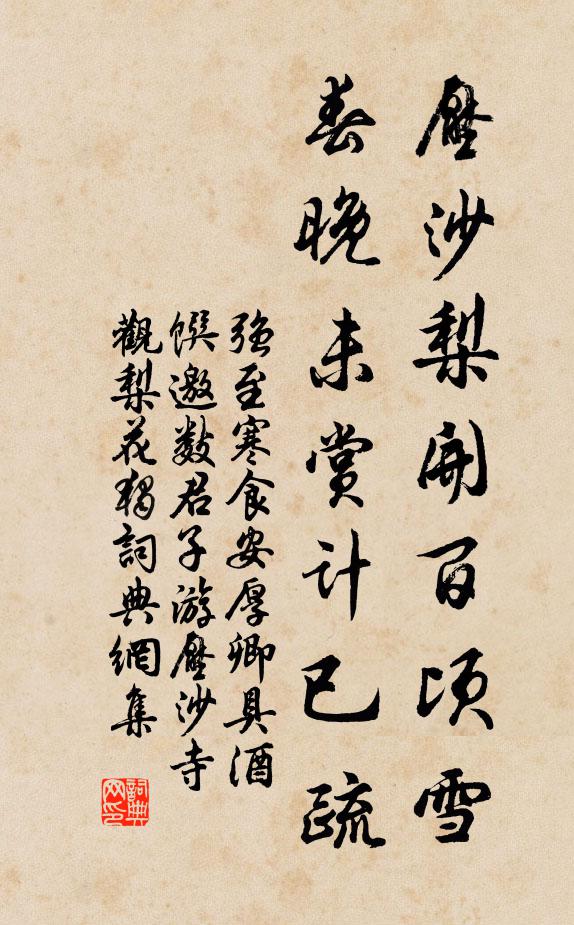 壓沙梨開百頃雪
春晚未賞計已疏
強至寒食安厚卿具酒
饌邀數君子游壓沙寺
觀梨花獨詞典網集
詞典网印